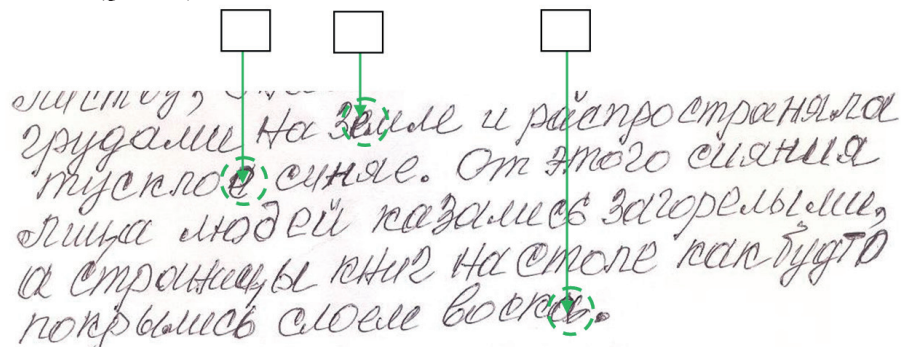 листву,
грудами на земле и распространяла
тусклое сияние. От этого сияния
лица людей казались загорелыми,
а страницы книг на столе как будто
покрылись слоем воска.